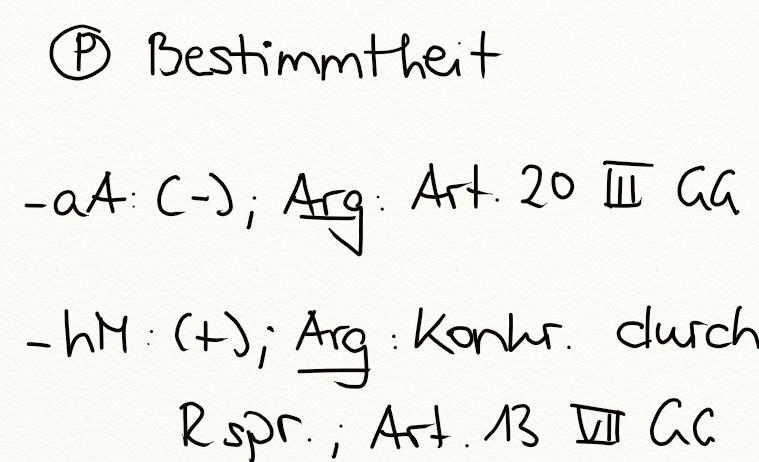 Ⓟ Bestimmtheit
-aA: (-); Arg: Art. 20 III GG
-hM: (+); Arg: Konkr. durch
Rspr.; Art. 13 VII GG